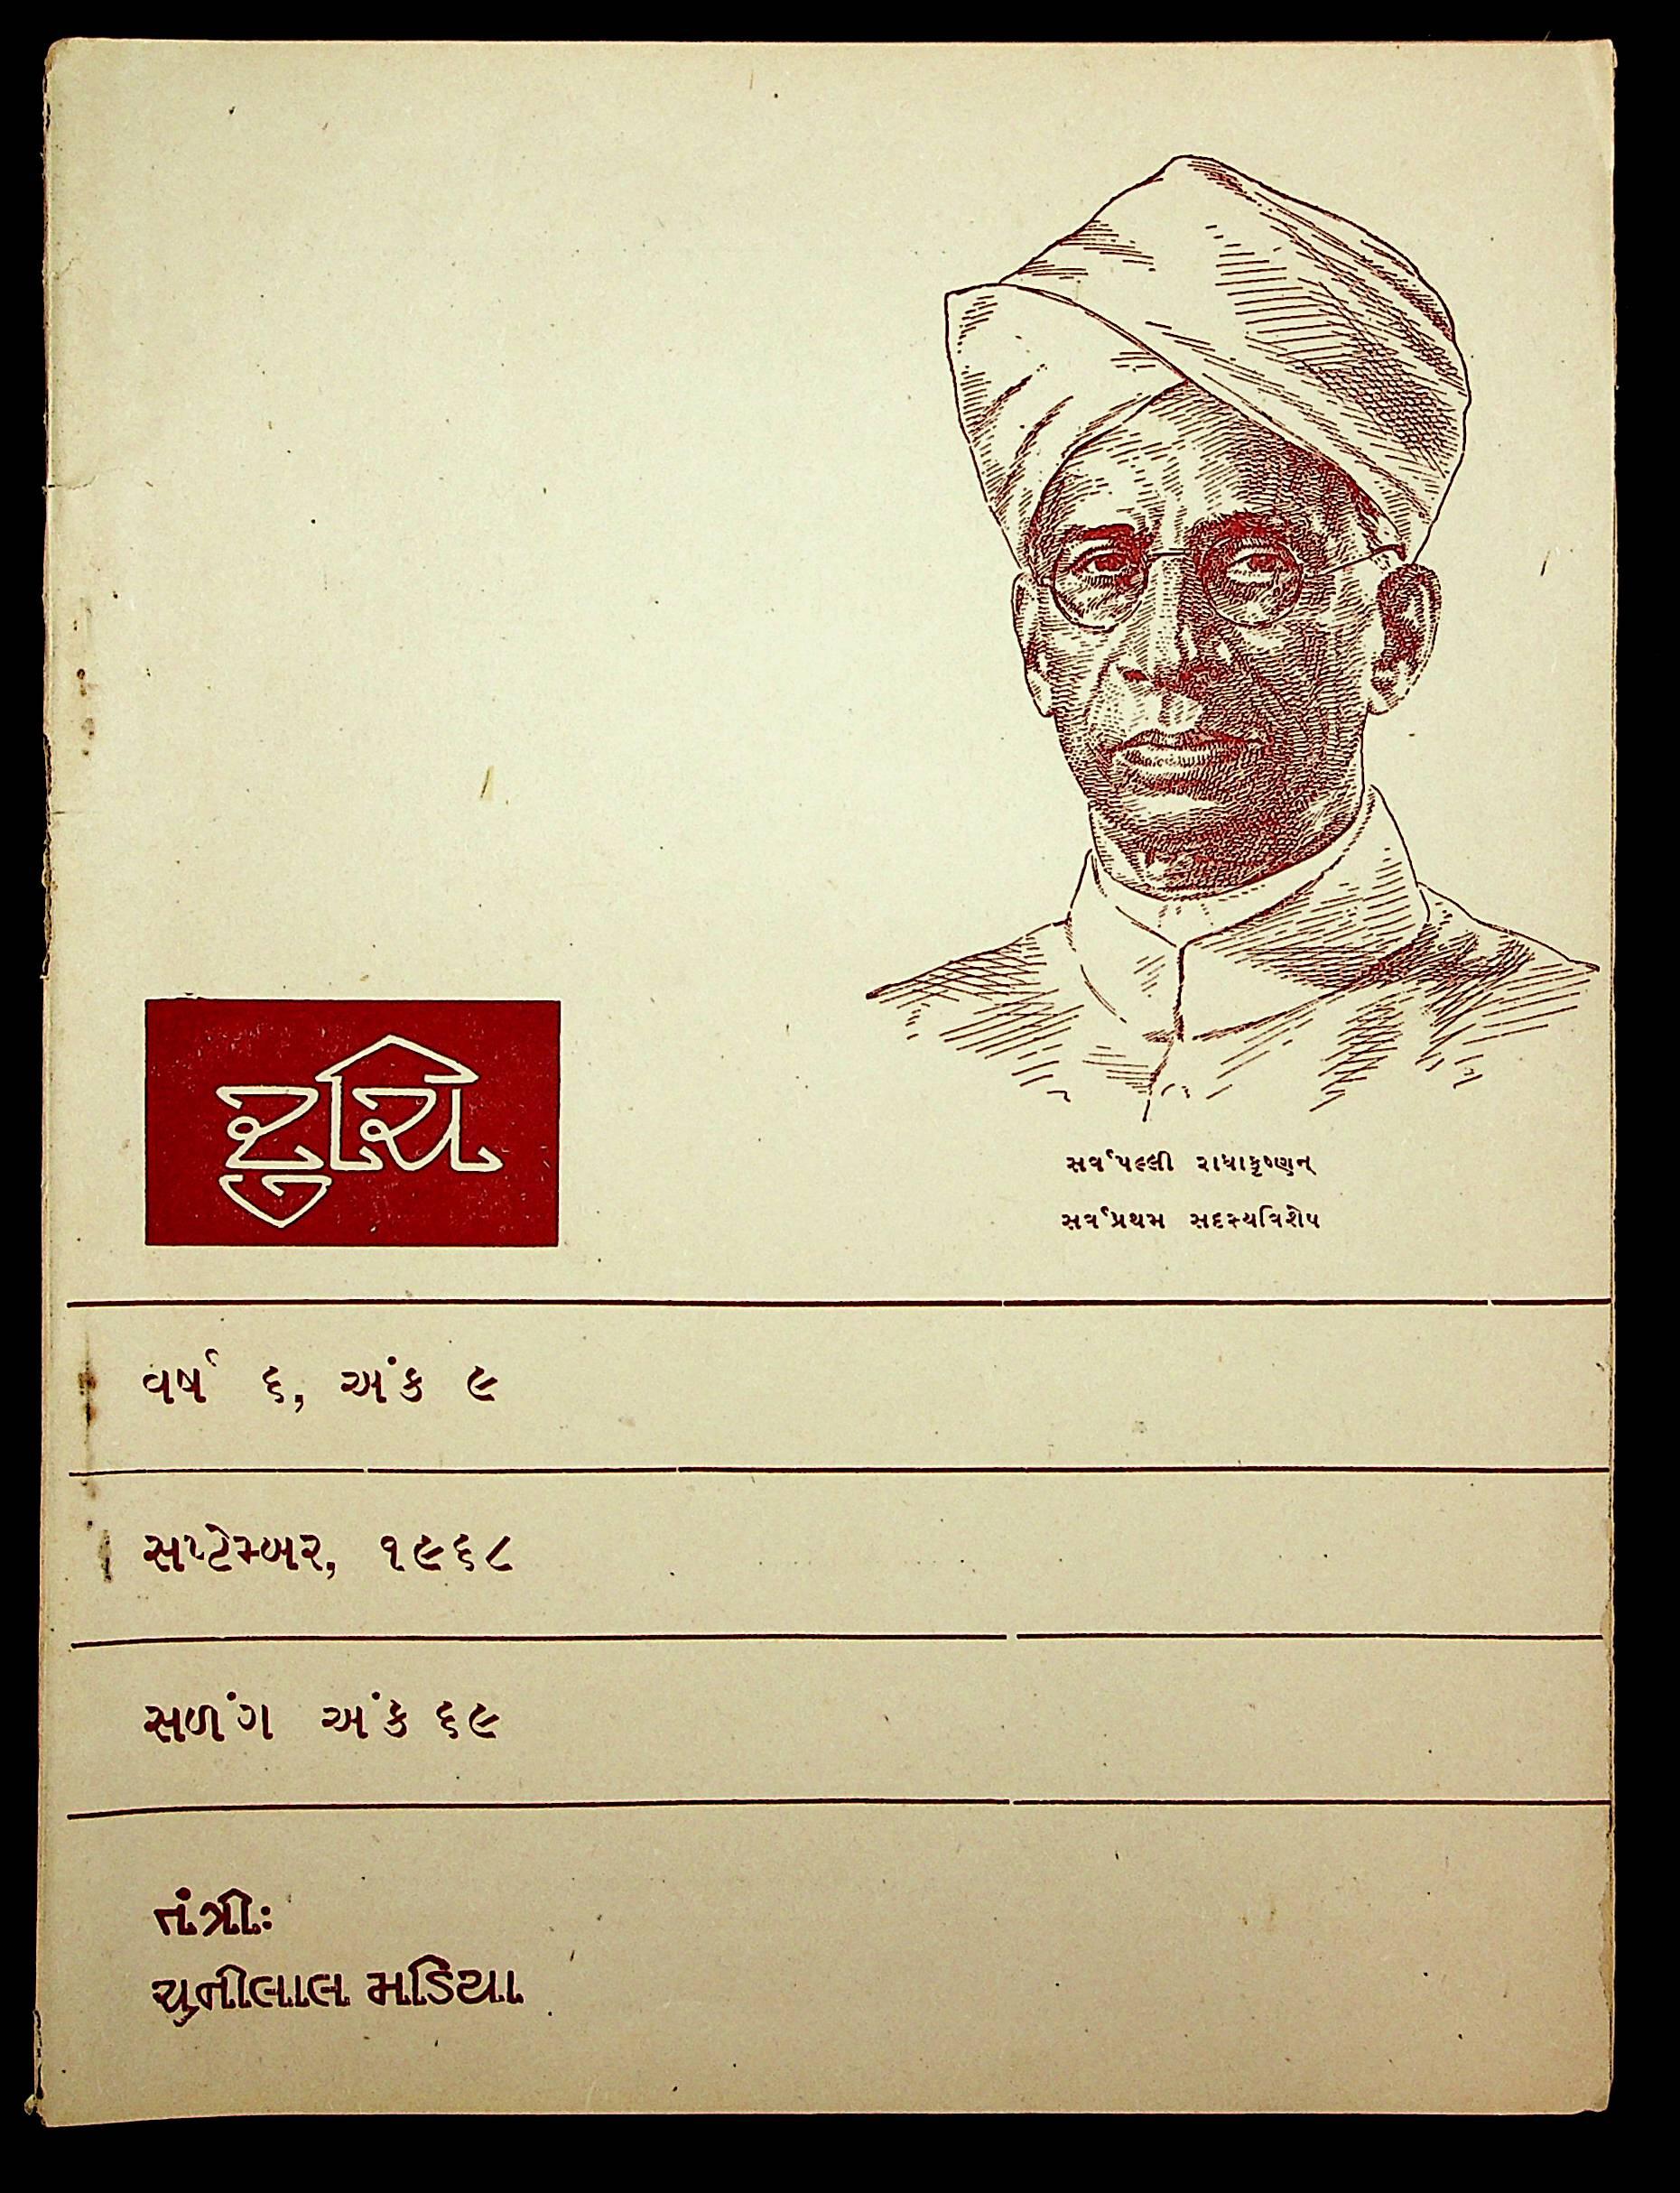 રુચિ
સર્વપલ્લી રાધાકૃષ્ણન્
સર્વપ્રથમ સદસ્યવિશેષ
વર્ષ ૬, અંક ૯
સપ્ટેમ્બર, ૧૯૬૮
સળંગ અંક ૬૯
તંત્રીઃ
ચુનીલાલ મડિયા